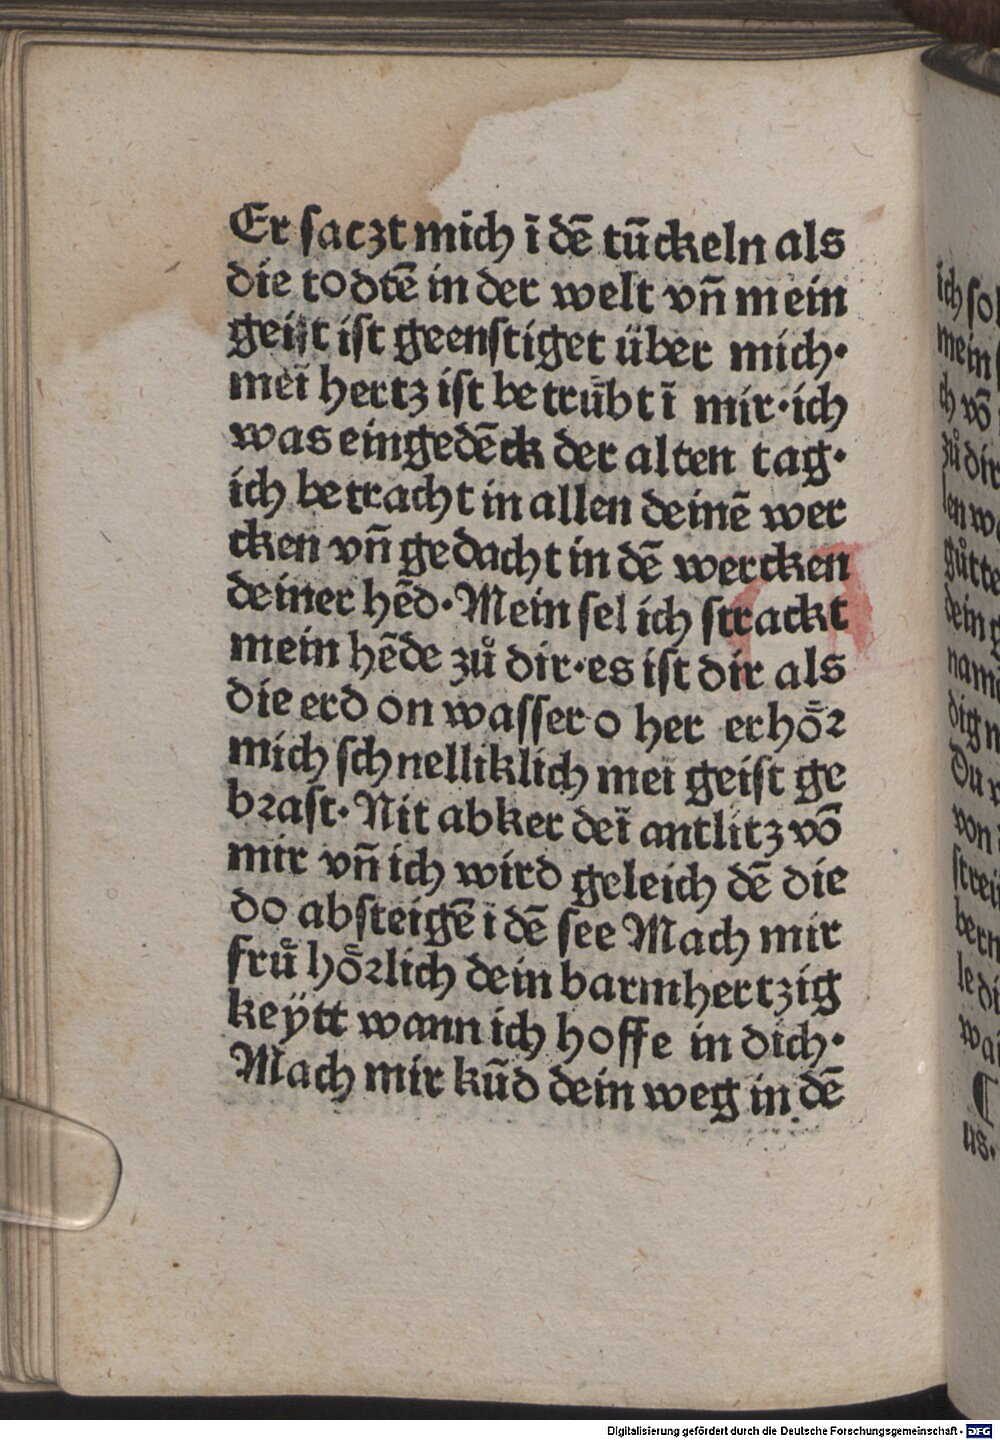 Er saczt mich ī dē tūckeln als
die todtē in der welt vn̄ mein
geist ist geenstiget über mich·
mei hertz ist betrübt ī mir·ich
was eingedēck der alten tag·
ich betracht in allen deinē wer
cken vn̄ gedacht in dē wercken
deiner hēd·Mein sel ich strackt
mein hēde zů dir·es ist dir als
die erd on wasser o her erhöꝛ
mich schnelliklich mei geist ge
bꝛast·Nit abker deī antlitz vō
mir vn̄ ich wird geleich dē die
do absteigē i dē see Mach mir
frů höꝛlich dein barmhertzig
keÿtt wann ich hoffe in dich·
Mach mir kūd dein weg in dē
ich so
mein
ch vō
zů dir
len we
gůtte
dein g
name
dig n
Du v
von
strei
bern
le di
wan
us·
Digitalisierung gefördert durch die Deutsche Forschungsgemeinschaft - DFG